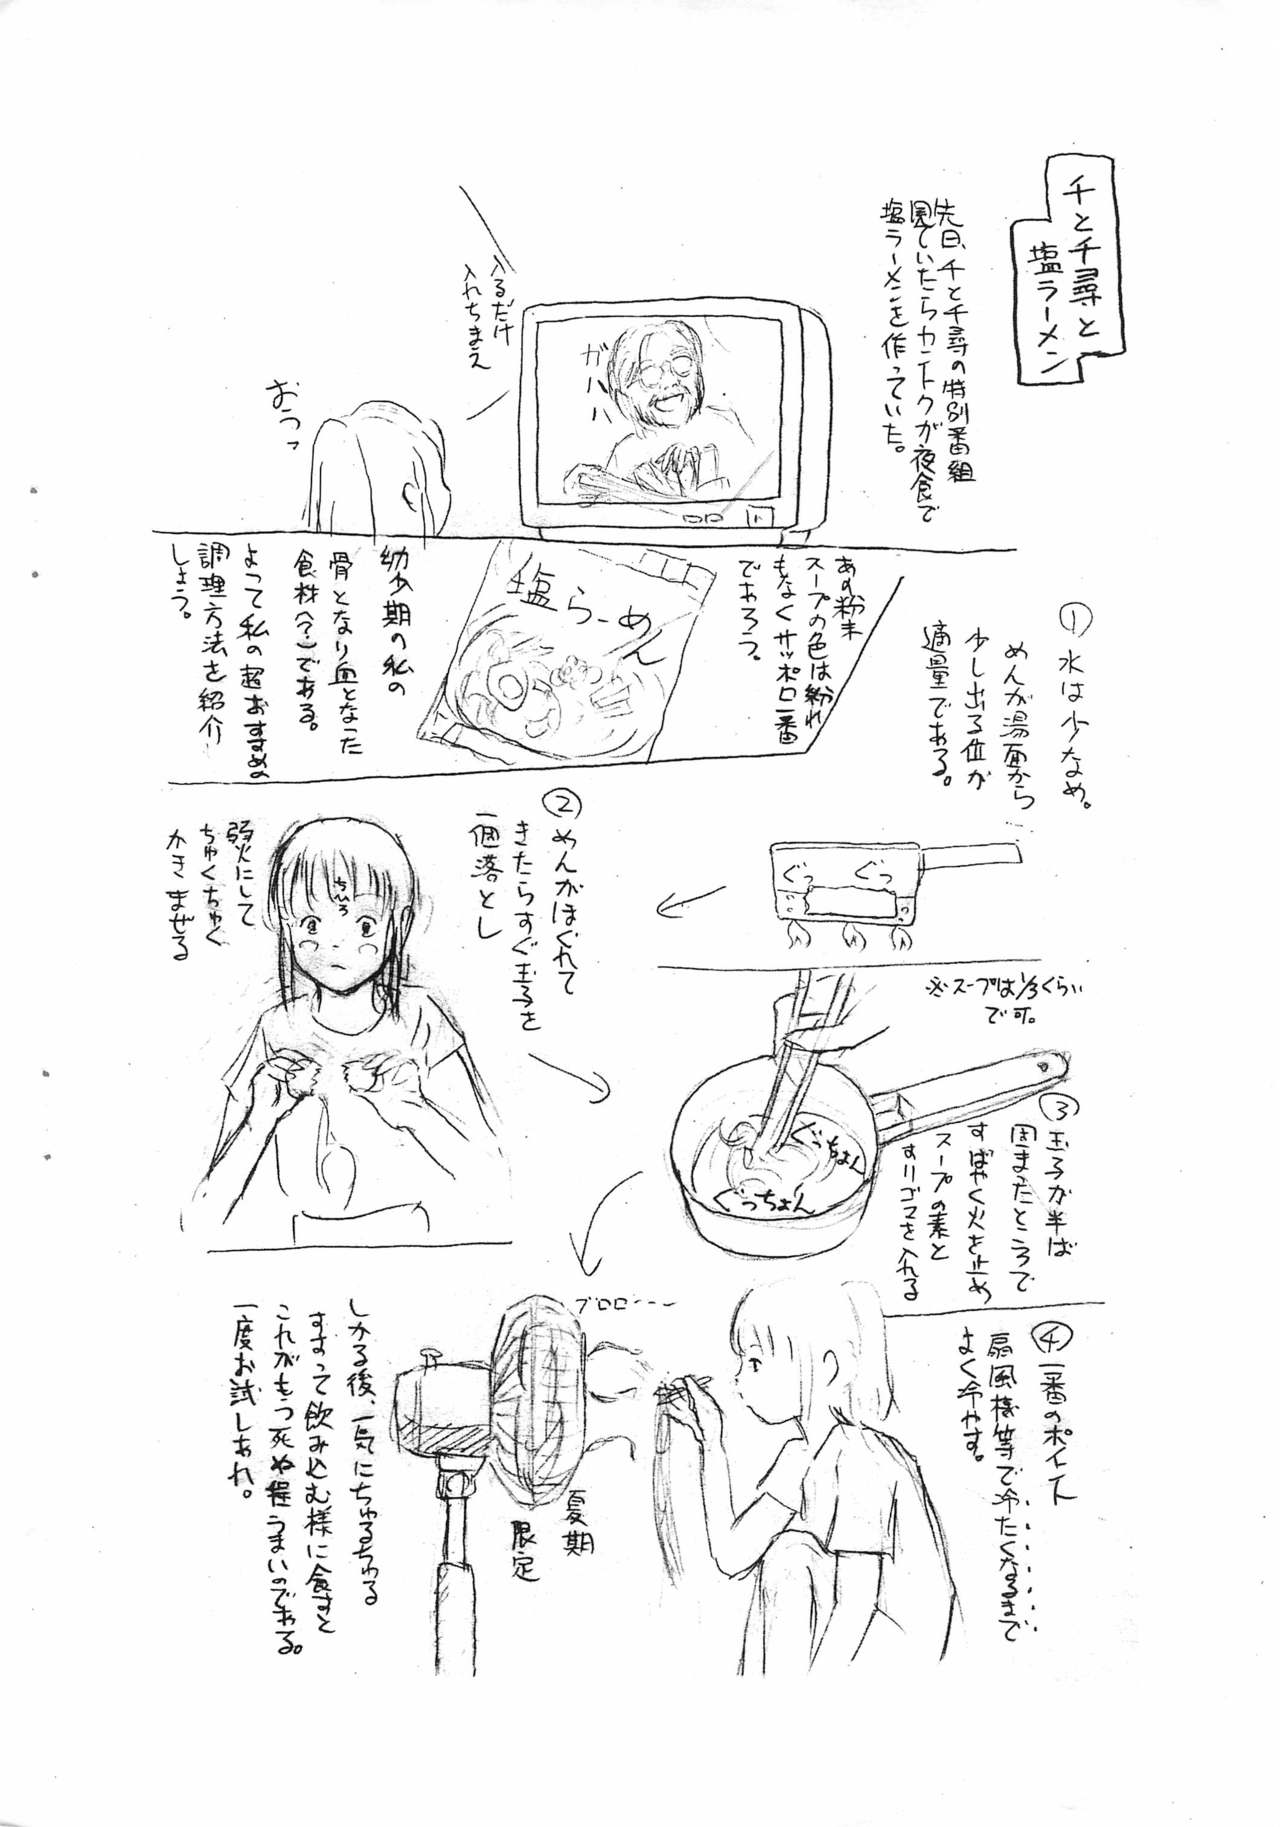 千と千尋と
塩ラーメン
先日、千と千尋の特別番組
見ていたらカントクが夜食で
塩ラーメンを作っていた。
ガハハハ
入るだけ
入れちまえ
おうッ
あの粉末
スープの色は紛れ
もなくサッポロ一番
であろう。
塩らーめん
幼少期の私の
骨となり血となった
食材(？)である。
よって私の超おすすめの
調理方法を紹介
しよう。
① 水は少なめ。
めんが湯面から
少し出る位が
適量である。
ぐつ ぐつ
② めんがほぐれて
きたらすぐ玉子を
一個落とし
ちひろ
弱火にして
ちゅくちゅく
かきまぜる
※スープは1/3くらい
で可。
③ 玉子が半ば
固まったところで
すばやく火を止め
スープの素と
すりゴマを入れる
ぐっちょん
ぐっちょん
④ 一番のポイント
扇風機等で冷たくなるまで
よく冷やす。
ブロロ〜〜
夏期
限定
しかる後、一気にちゅるちゅる
すすって飲み込む様に食すと
これがもう死ぬ程うまいのである。
一度お試しあれ。